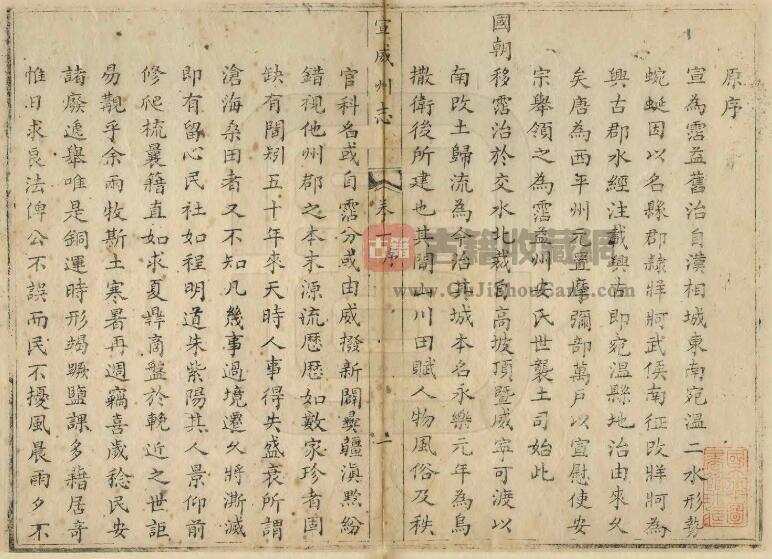 原序
宣為霑益舊治自漢相城東南宛溫二水形勢
蜿蜒因以名縣郡隸牂牁武侯南征改牂牁為
興古郡水經注載興古即宛溫縣地治由來久
矣唐為西平州元置摩彌部萬戶以宣慰使安
宗舉領之為霑益州安氏世襲土司始此
國朝移霑治於交水北裁自高坡頂暨威寧可渡以
南改土歸流為今治其城本名永樂元年為烏
撒衛後所建也其間山川田賦人物風俗及秩
宣威州志
卷一
序
一
官科名或自霑分或由威撥新闢彝疆滇黔紛
錯視他州郡之本末源流歷歷如數家珍者固
缺有間矧五十年來天時人事得失盛衰所謂
滄海桑田者又不知凡幾事過境遷久將澌滅
即有留心民社如程明道朱紫陽其人景仰前
修爬梳曩籍直如求夏鼎商盤於輓近之世詎
易觀乎余兩牧斯土寒暑再週竊喜歲稔民安
諸廢遞舉唯是銅運時形竭蹶鹽課多藉居奇
惟日求良法俾公不誤而民不擾風晨雨夕不
古籍
古籍收藏网
www.GuJiShouCang.com